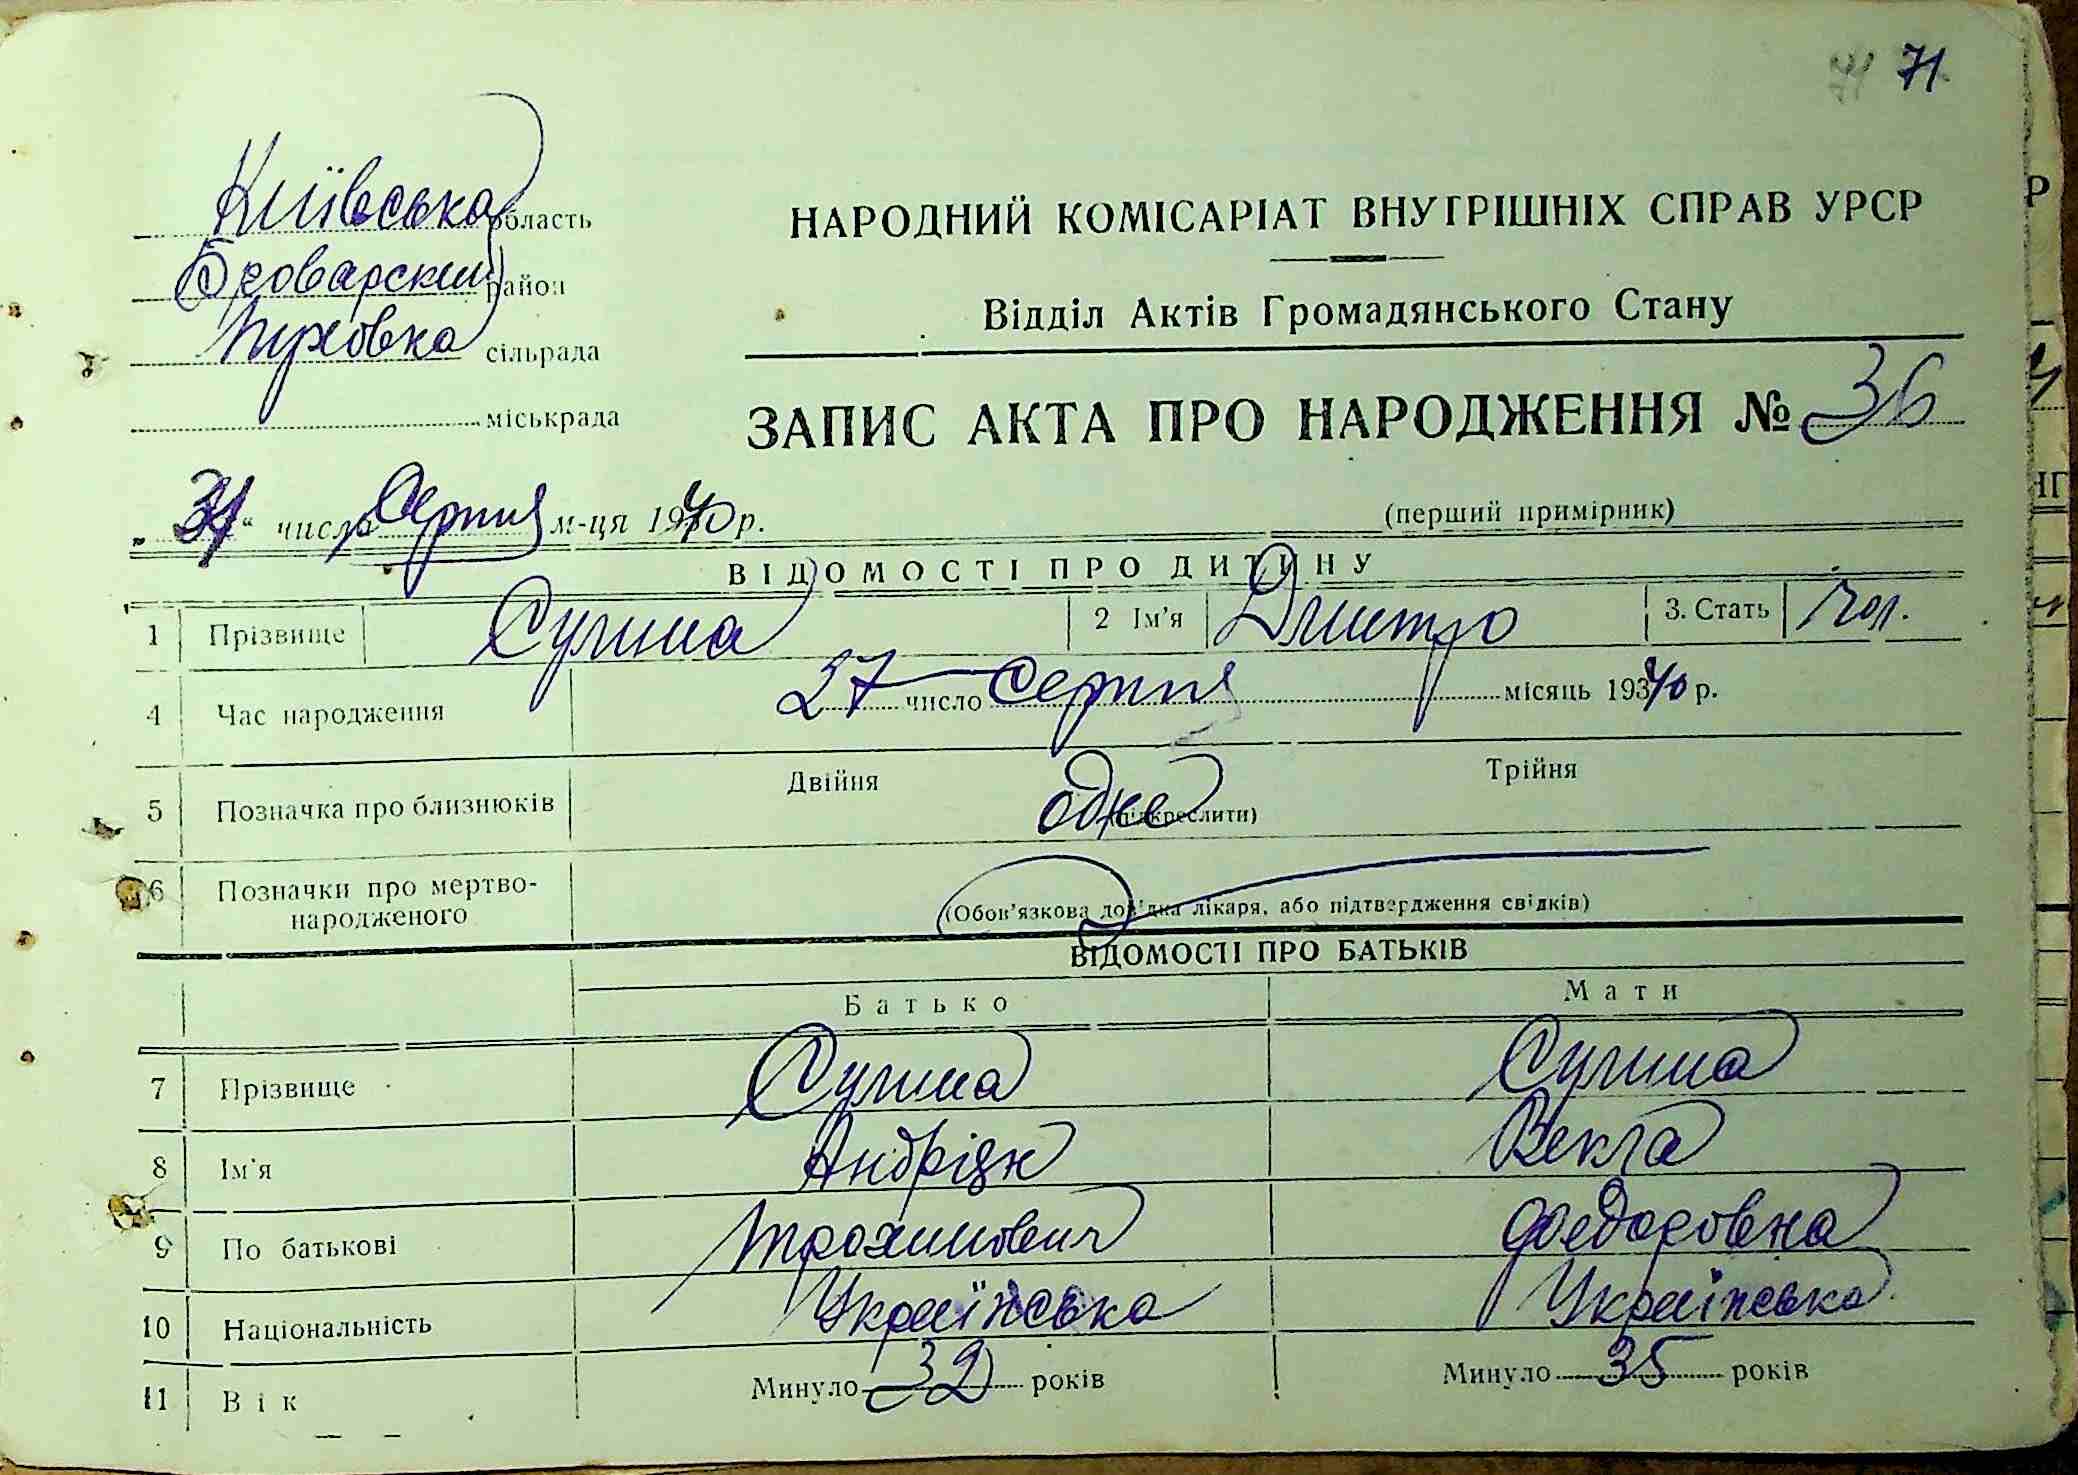 71 71
Київська область
Броварский район
Пуховка сільрада
міськрада
НАРОДНИЙ КОМІСАРІАТ ВНУТРІШНІХ СПРАВ УРСР
Відділ Актів Громадянського Стану
ЗАПИС АКТА ПРО НАРОДЖЕННЯ № 36
(перший примірник)
„31“ число Серпня м-ця 1940 р.
ВІДОМОСТІ ПРО ДИТИНУ
1 Прізвище Сулима 2 Ім'я Дмитро 3. Стать Чол.
4 Час народження 27 число Серпня місяць 1940 р.
5 Позначка про близнюків Двійня одне Трійня
(підкреслити)
6 Позначки про мертво-
народженого
(Обов'язкова довідка лікаря, або підтвердження свідків)
ВІДОМОСТІ ПРО БАТЬКІВ
Батько Мати
7 Прізвище Сулима Сулима
8 Ім'я Андріян Векла
9 По батькові Трохимович Федоровна
10 Національність Українська Українська
11 Вік Минуло 32 років Минуло 35 років